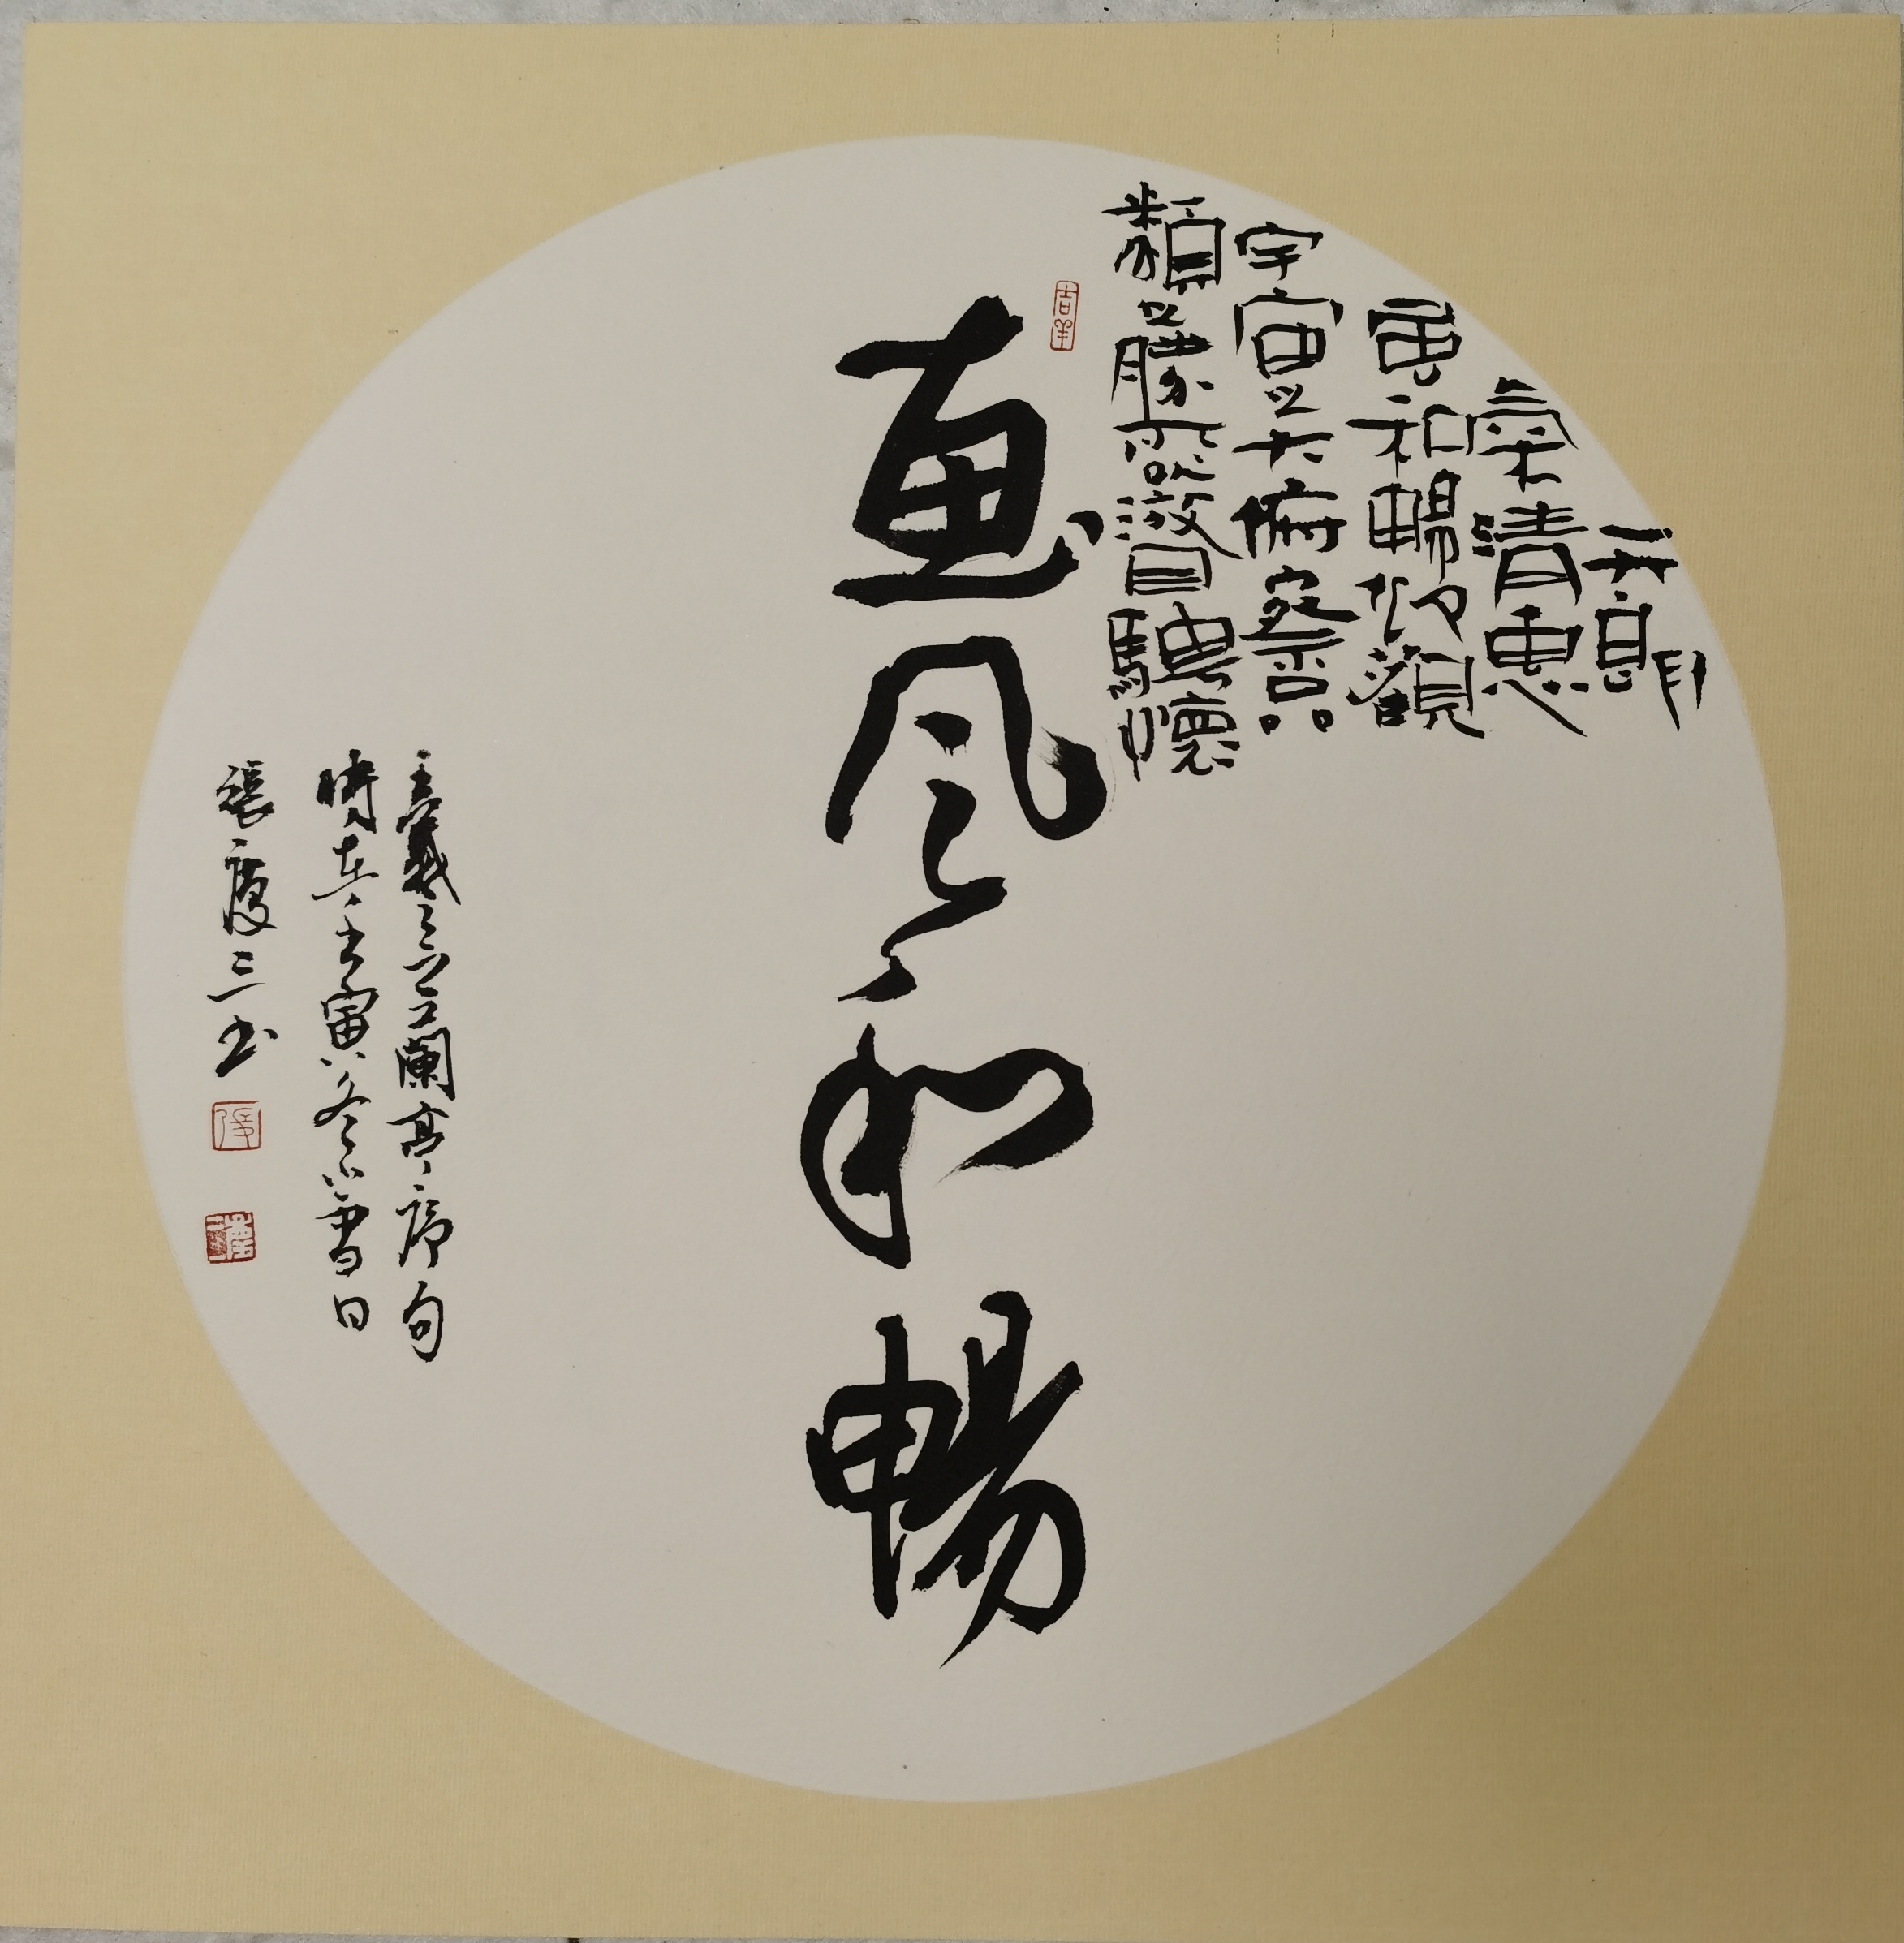 天朗
氣清惠
風和暢仰觀
宇宙之大俯察品
類之勝所以遊目騁懷
吉羊
惠風和暢
王羲之蘭亭序句
時在壬寅冬小雪日
張慶三书